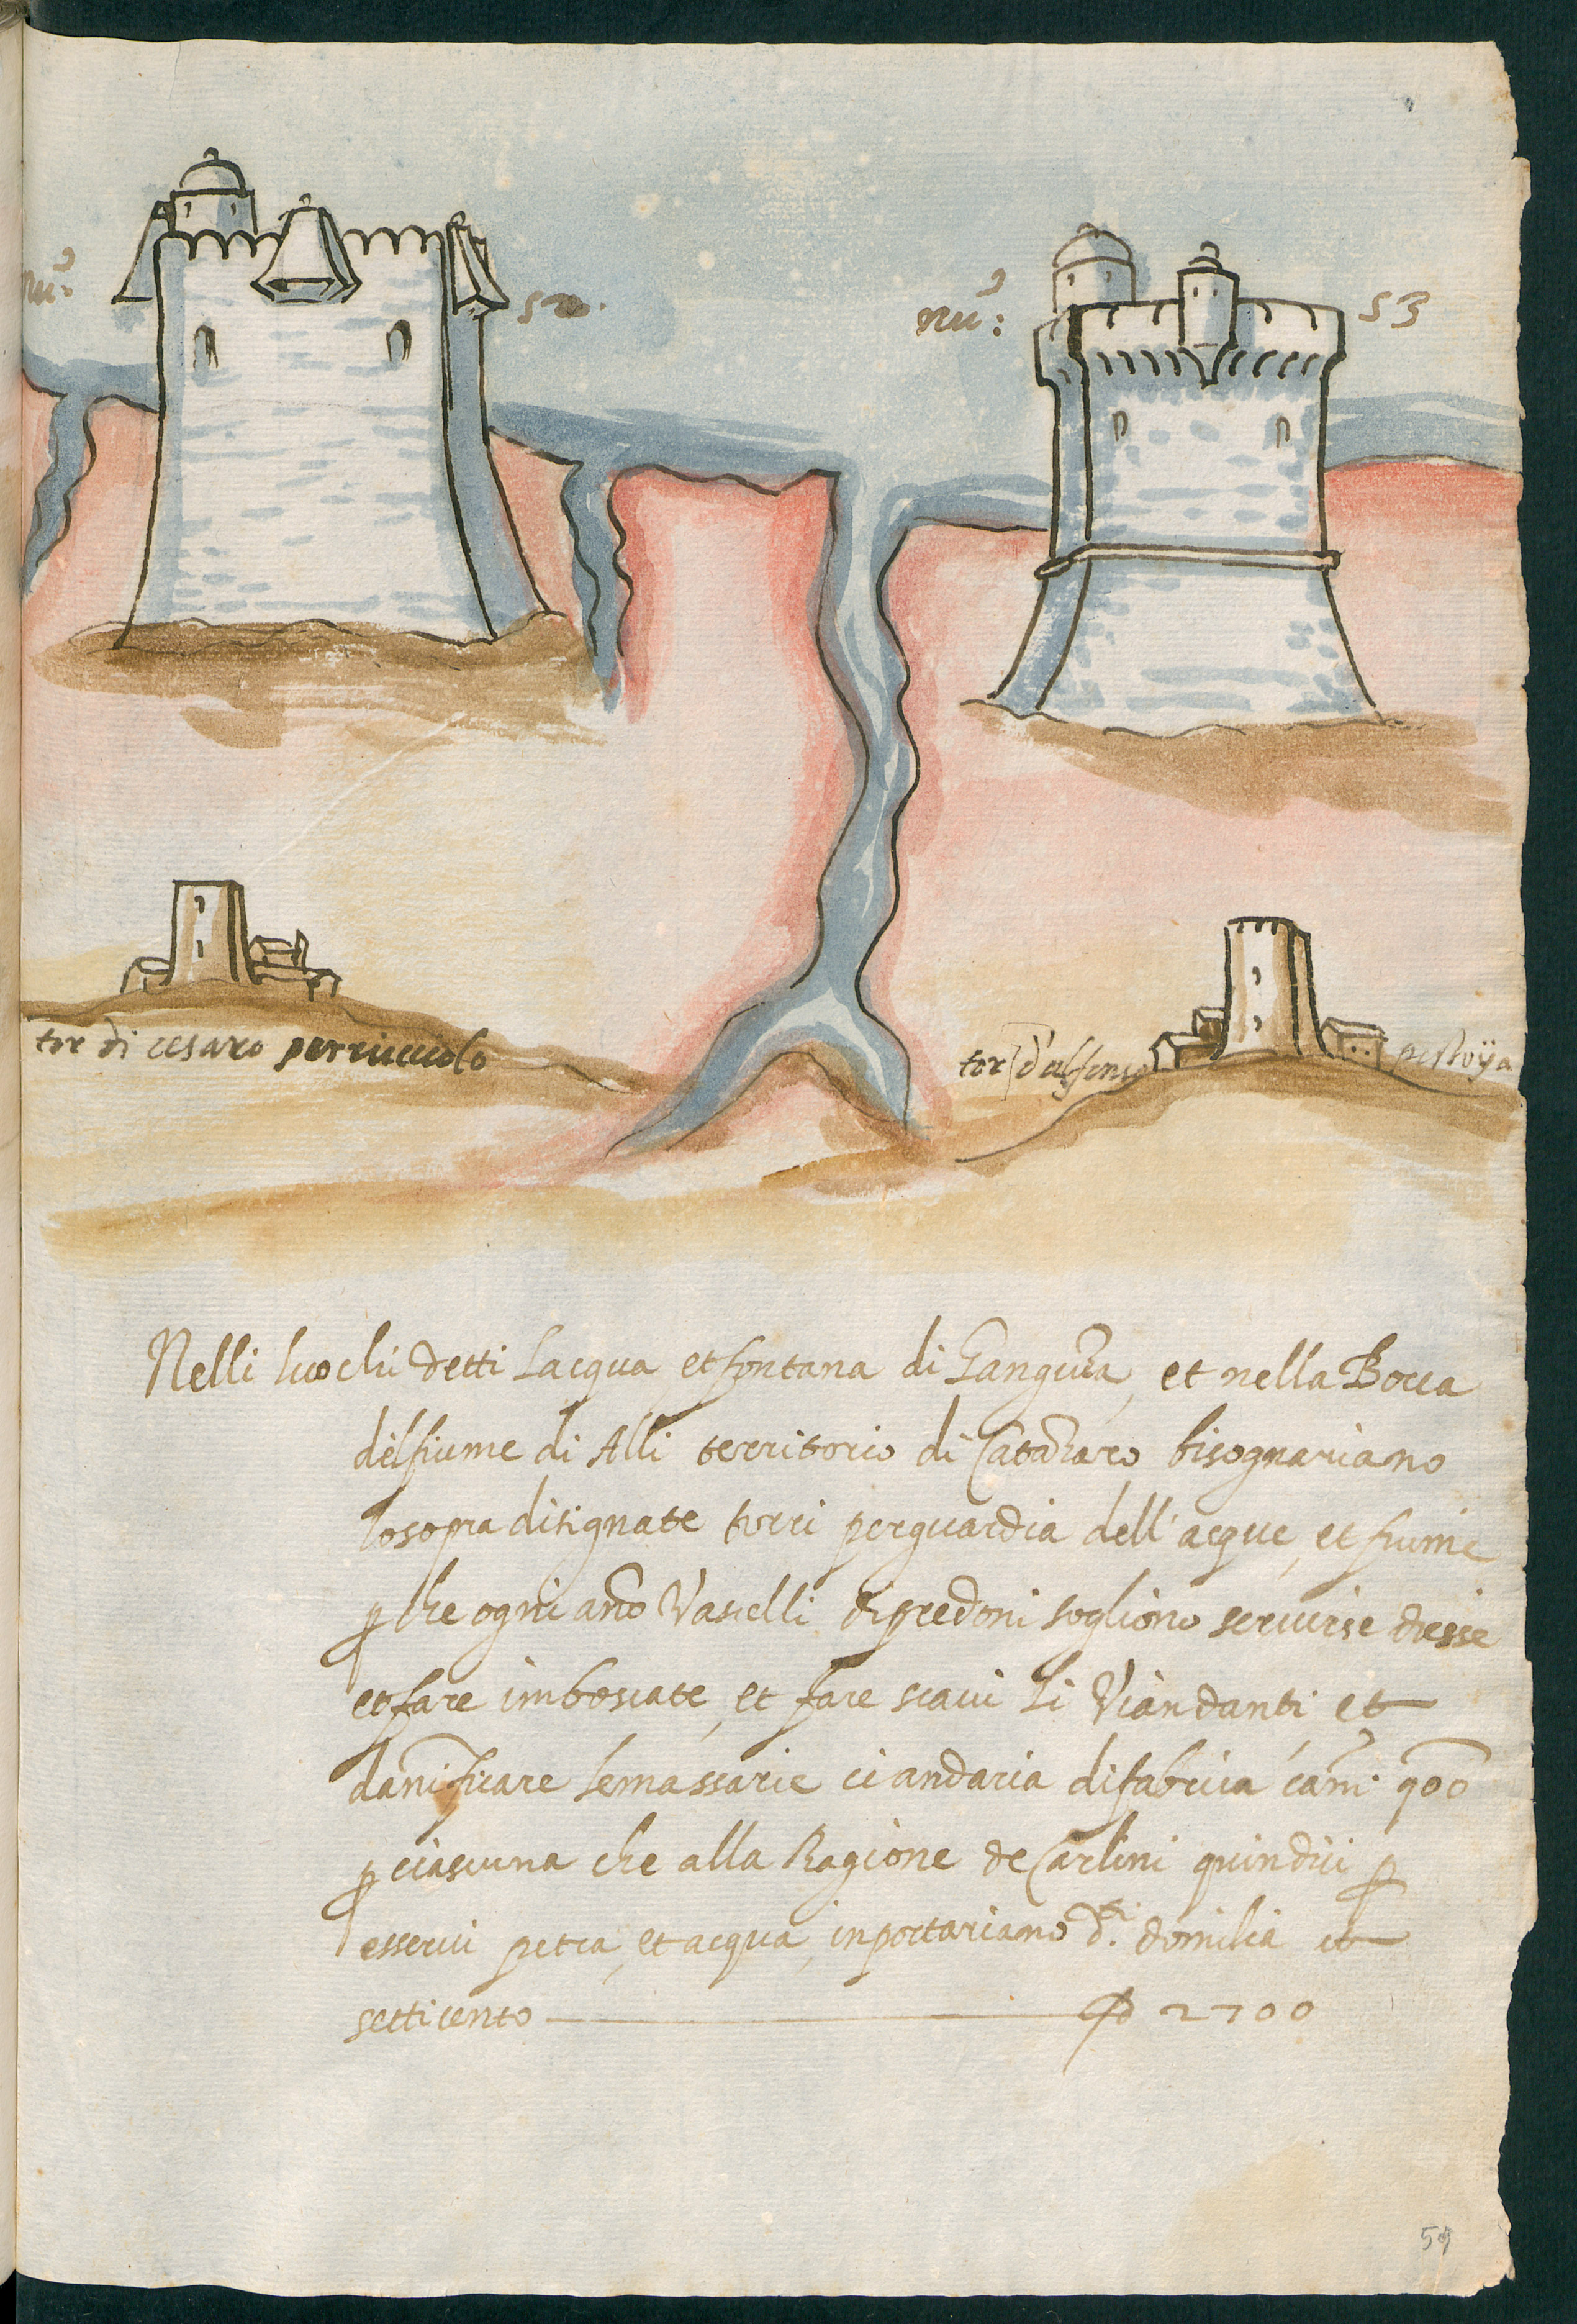 nu: 52.
nu: 53
tor di cesaro perruccolo
tor d'alfonso
Nelli luochi detti Lacqua et fontana di et nella Bocca
del fiume di Alli territorio di Catanzaro bisognariano
lo sopra disignate torri per guardia dell'acque, et fiume
p che ogni anno Vascelli di predoni sogliono servirse desse
et fare imboscate, et fare scavi li Viandanti, et
dannificare le massarie ci andaria di fabrica cann: 900
p ciascuna che alla Ragione de Carlini quindici p
esserci petra, et acqua, inportariano d.ti domilia et
setticento D 2700
59